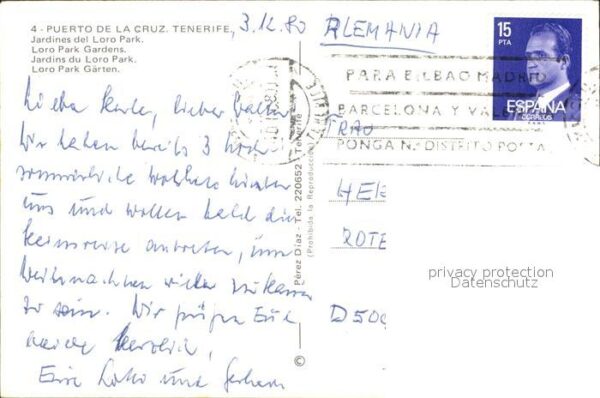 4 - PUERTO DE LA CRUZ. TENERIFE.
Jardines del Loro Park.
Loro Park Gardens.
Jardins du Loro Park.
Loro Park Gärten.
3.12.80
ALEMANIA
15
PTA
ESPAÑA
CORREOS
PARA BILBAO MADRID
BARCELONA Y VAL
PONGA Nº DISTRITO POSTA
Liebe lieber
Wir haben bereits 3
sommerliche hinter
uns und wollen bald die
Heimreise antreten, um
Weihnachten wieder zu Hause
zu sein. Wir grüßen Euch
herzlich,
Eure und
FRAU
HE
ROTE
D 500
© Pérez Díaz - Tel. 220652 - Tenerife
(Prohibida la Reproducción)
privacy protection
Datenschutz